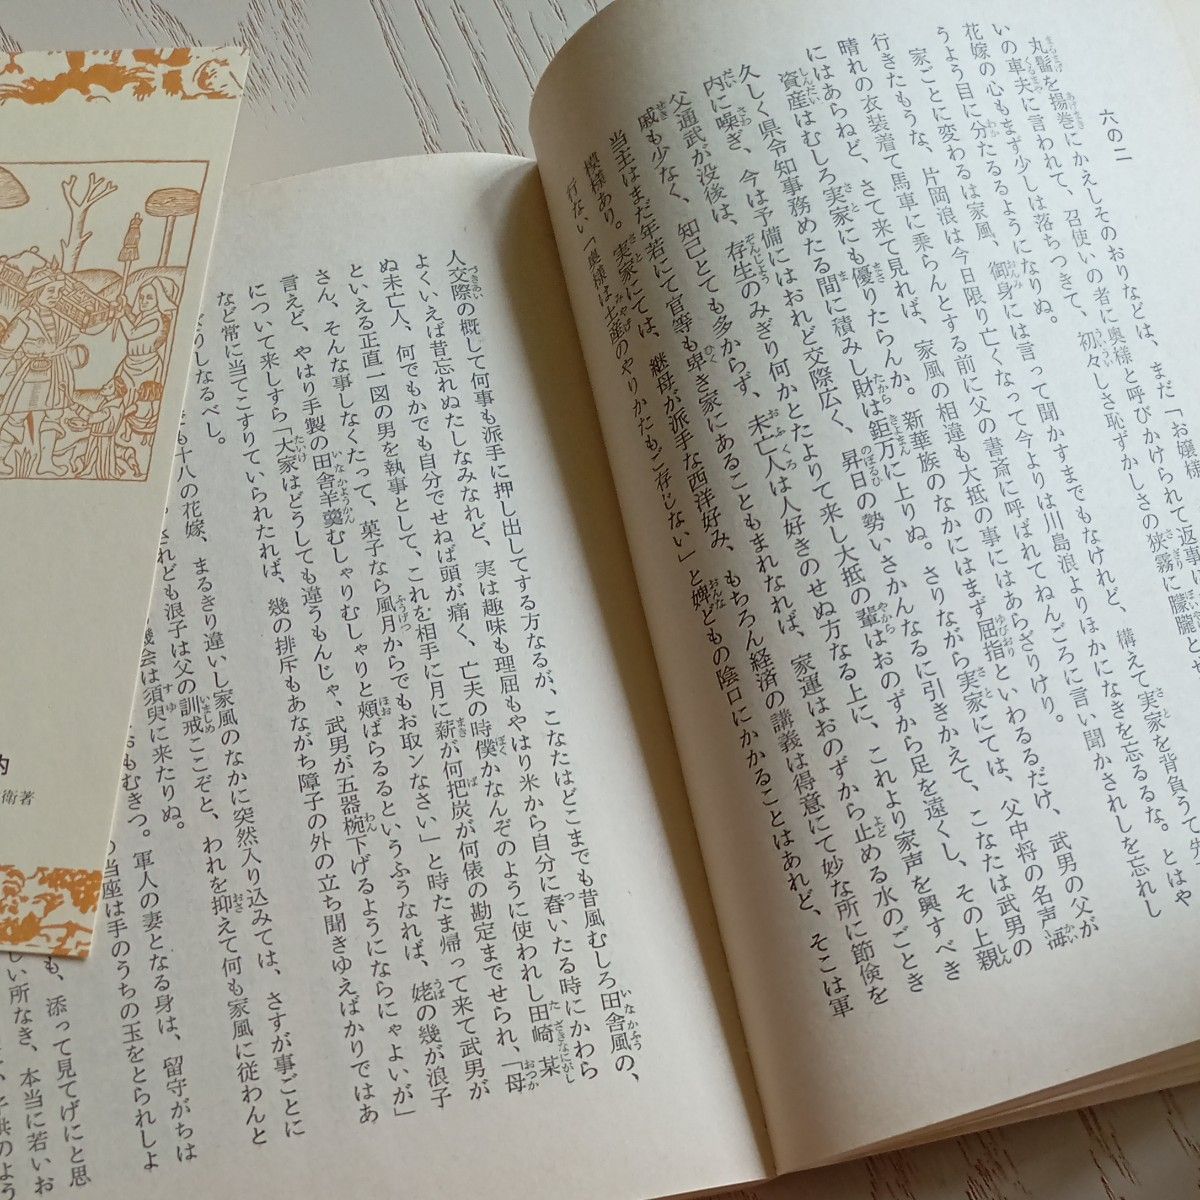 六の二
丸髷を揚巻にかえしそのおりなどは、まだ「お嬢様
いの車夫に言われて、召使いの者に奥様と呼びかけられて返事に
花嫁の心もまず少しは落ちつきて、初々しさ恥ずかしさの狭霧に朦朧と
うよう目に分たるるようになりぬ。
家ごとに変わるは家風、御身には言って聞かすまでもなけれど、構えて実家を背負うて先
行きたもうな、片岡浪は今日限り亡くなって今よりは川島浪よりほかになきを忘るるな。とはや
晴れの衣装着て馬車に乗らんとする前に父の書斎に呼ばれてねんごろに言い聞かされしを忘れし
にはあらねど、さて来て見れば、家風の相違も大抵の事にはあらざりけり。
資産はむしろ実家にも優りたらんか。新華族のなかにはまず屈指といわるるだけ、武男の父が
久しく県令知事務めたる間に積みし財は鉅万に上りぬ。さりながら実家にては、父中将の名声海
内に噪ぎ、今は予備にはおれど交際広く、昇日の勢いさかんなるに引きかえて、こなたは武男の
父通武が没後は、存生のみぎり何かとたよりて来し大抵の輩はおのずから足を遠くし、その上親
戚も少なく、知己とても多からず、未亡人は人好きのせぬ方なる上に、これより家声を興すべき
当主はまだ年若にて官等も卑き家にあることもまれなれば、家運はおのずから止める水のごとき
模様あり。実家にては、継母が派手な西洋好み、もちろん経済の講義は得意にて妙な所に節倹を
行ない「奥様は土産のやりかたもご存じない」と婢どもの陰口にかかることはあれど、そこは軍
人交際の概して何事も派手に押し出してする方なるが、こなたはどこまでも昔風むしろ田舎風の、
よくいえば昔忘れぬたしなみなれど、実は趣味も理屈もやはり米から自分に舂いたる時にかわら
ぬ未亡人、何でもかでも自分でせねば頭が痛く、亡夫の時僕かなんぞのように使われし田崎某
といえる正直一図の男を執事として、これを相手に月に薪が何把炭が何俵の勘定までせられ、「母
さん、そんな事しなくたって、菓子なら風月からでもお取ンなさい」と時たま帰って来て武男が
言えど、やはり手製の田舎羊羹むしゃりむしゃりと頬ばらるるというふうなれば、姥の幾が浪子
について来しすら「大家はどうしても違うもんじゃ、武男が五器椀下げるようにならにゃよいが」
など常に当てこすりていられたれば、幾の排斥もあながち障子の外の立ち聞きゆえばかりではあ
ざりしなるべし。
も十八の花嫁、まるきり違いし家風のなかに突然入り込みては、さすが事ごとに
されども浪子は父の訓戒ここぞと、われを抑えて何も家風に従わんと
機会は須臾に来たりぬ。
おもむきつ。軍人の妻となる身は、留守がちは
の当座は手のうちの玉をとられしよ
も、添って見てげにと思
しい所なき、本当に若いお
子供のよう
的
衛著